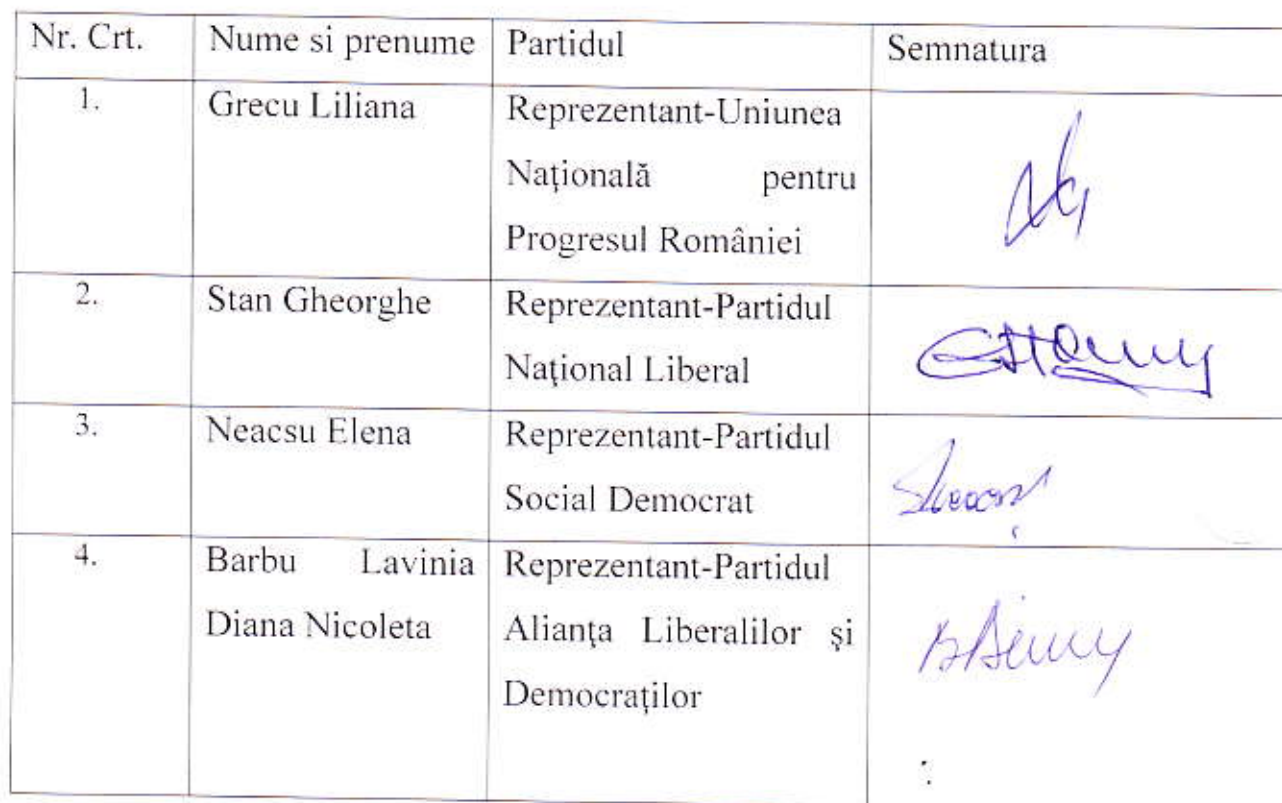 Nr. Crt. Nume si prenume Partidul Semnatura
1. Grecu Liliana Reprezentant-Uniunea
Naţională pentru
Progresul României
2. Stan Gheorghe Reprezentant-Partidul
Naţional Liberal
3. Neacsu Elena Reprezentant-Partidul
Social Democrat
4. Barbu Lavinia Reprezentant-Partidul
Diana Nicoleta Alianţa Liberalilor şi
Democraţilor